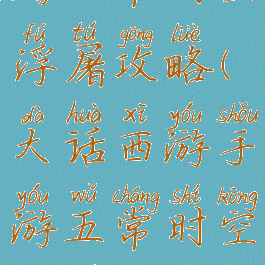 fú tú gōng lüè
浮屠攻略(
dà huà xī yóu shǒu
大话西游手
yóu wǔ cháng shí kōng
游五常时空